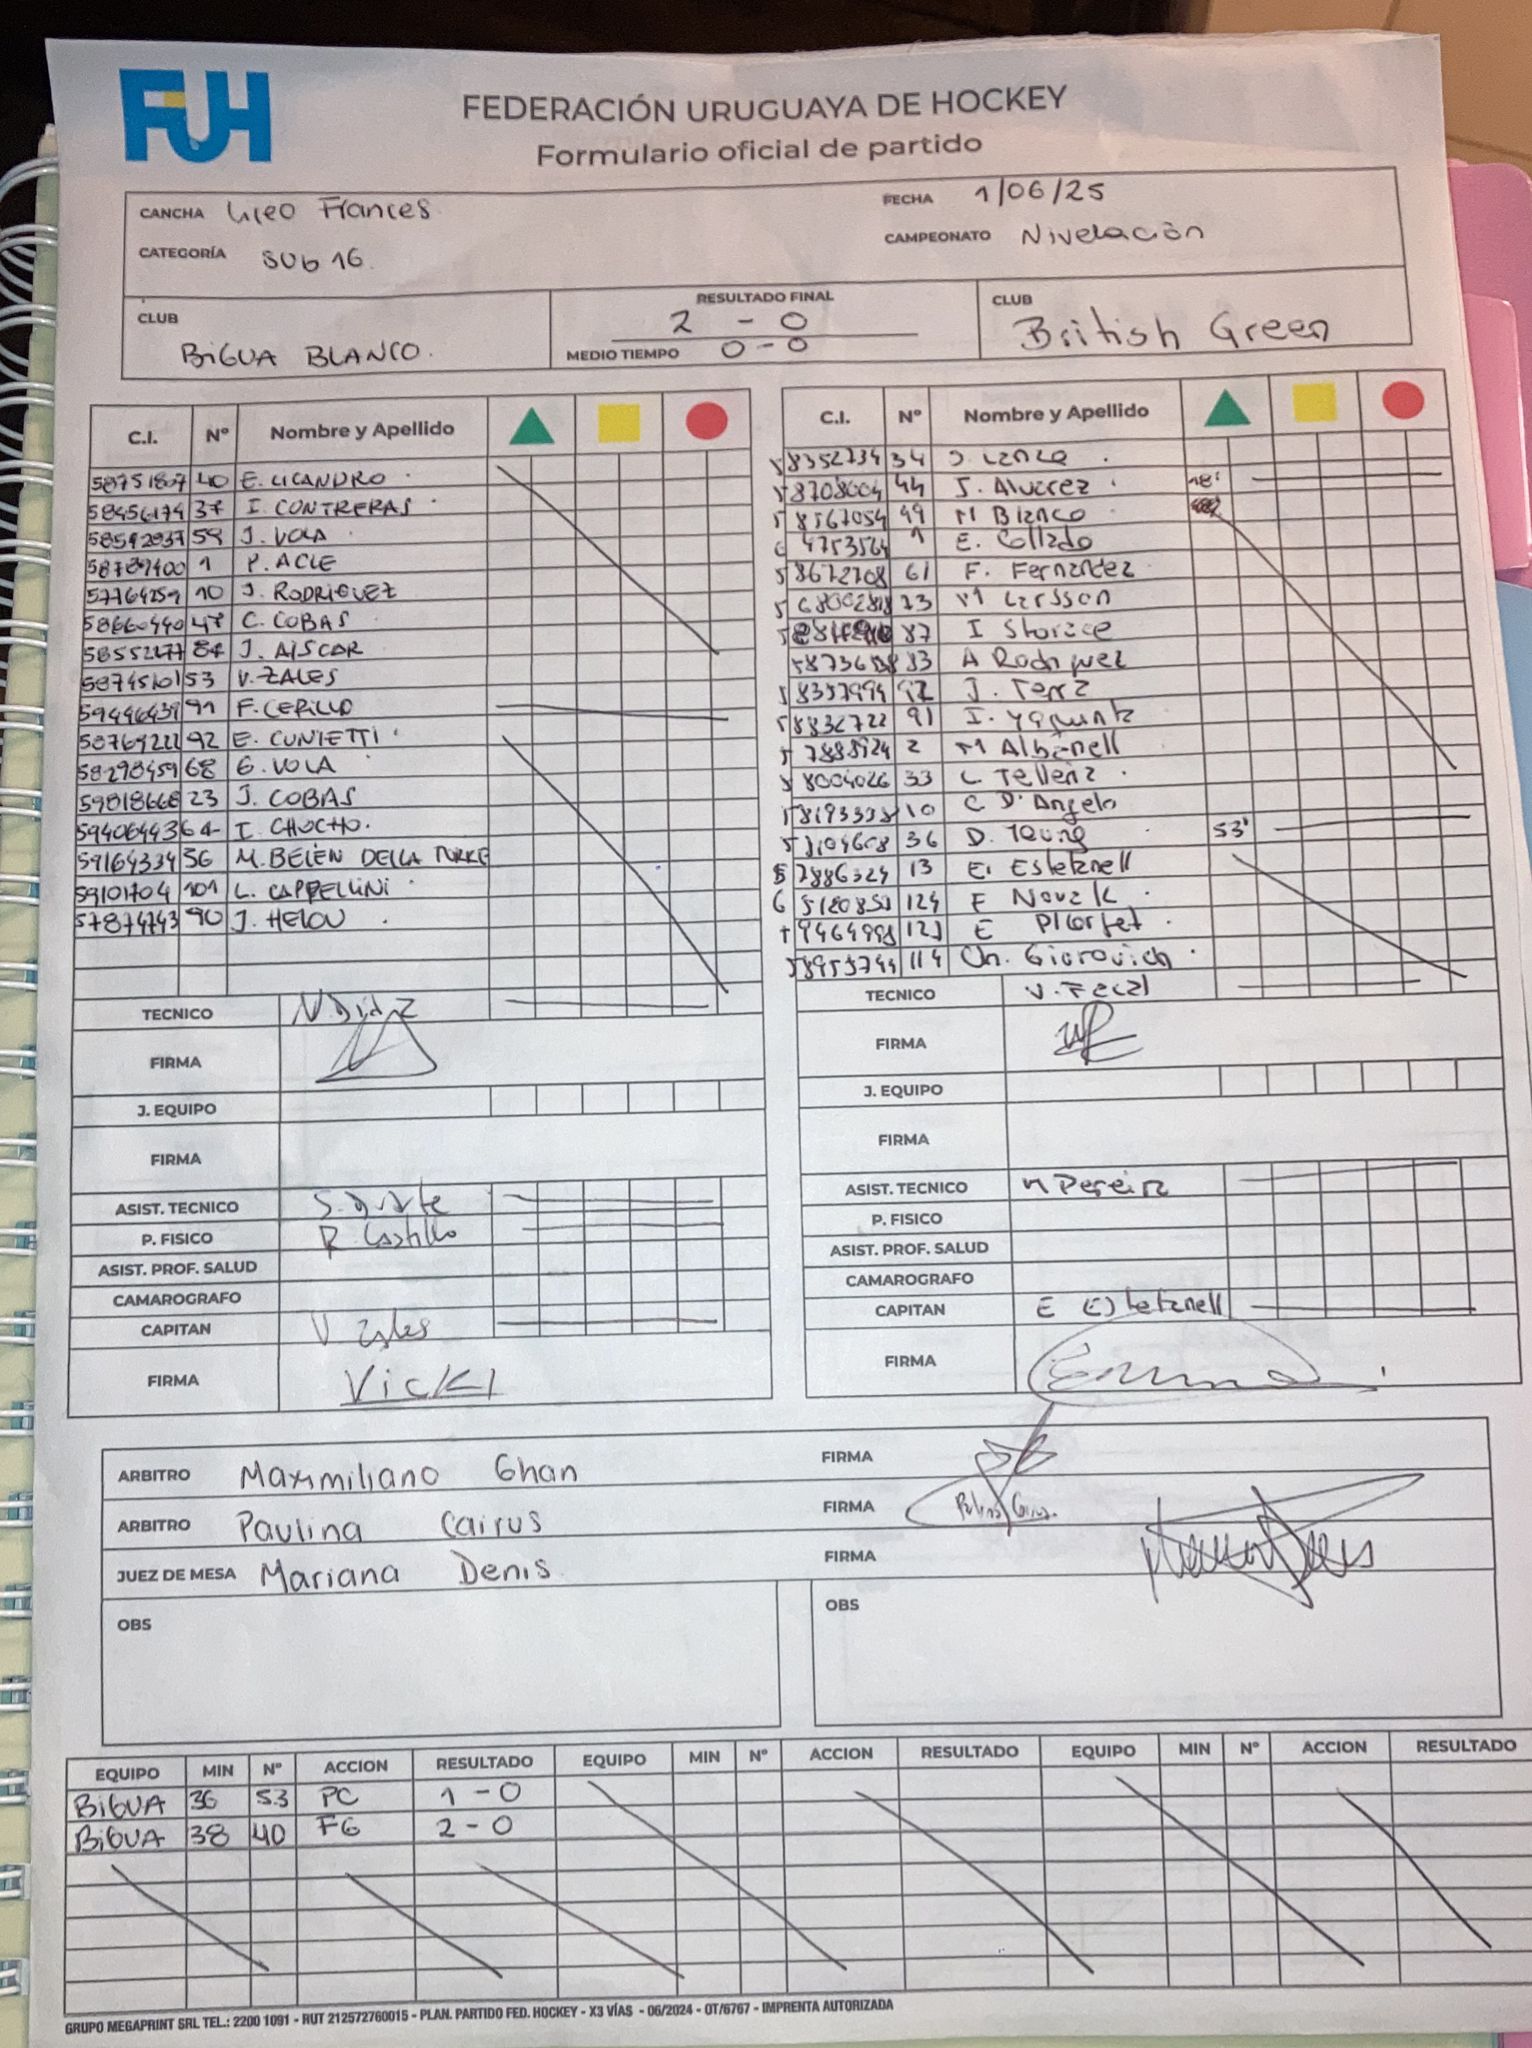 FUH
FEDERACIÓN URUGUAYA DE HOCKEY
Formulario oficial de partido
CANCHA Liceo Frances
FECHA 1/06/25
CATEGORÍA SUB 16
CAMPEONATO Nivelación
CLUB BIGUA BLANCO.
RESULTADO FINAL 2 - 0
MEDIO TIEMPO 0 - 0
CLUB British Green
C.I. Nº Nombre y Apellido
58751807 40 E. LICANDRO
58456174 37 I. CONTRERAS
58592037 59 J. VOLA
58789400 1 P. ACLE
57764259 10 J. RODRIGUEZ
58660440 47 C. COBAS
58552277 84 J. AISCAR
58745101 53 V. ZALES
59446439 91 F. CERILLO
58769222 92 E. CUNIETTI
58298459 68 G. VOLA
59818668 23 J. COBAS
59406443 64 I. CHOCHO.
59164334 56 M. BELÉN DELLA TORRE
59101704 101 L. CAPPELLINI
57874743 90 J. HELOU
TECNICO N Diaz
FIRMA
J. EQUIPO
FIRMA
ASIST. TECNICO S. Duarte
P. FISICO R Castillo
ASIST. PROF. SALUD
CAMAROGRAFO
CAPITAN V Zales
FIRMA Vicki
C.I. Nº Nombre y Apellido
58352734 34 J. Lanza
58708004 44 J. Alvarez 18'
58567054 49 M Blanco
64753564 1 E. Collado
58672708 61 F. Fernandez
73 M Larsson
87 I Storace
83 A Rodriguez
58357994 92 J. Terra
58832722 91 I.
57888924 2 M Albanell
58004026 33 L Telleria
10 C D'Angelo
36 D. Young 53'
57886324 13 E. Estefanell
124 F Novalk
E
58953744 114 Ch. Giurovich
TECNICO V.
FIRMA
J. EQUIPO
FIRMA
ASIST. TECNICO M Pereira
P. FISICO
ASIST. PROF. SALUD
CAMAROGRAFO
CAPITAN E Estefanell
FIRMA
ARBITRO Maximiliano Ghan FIRMA
ARBITRO Paulina Cairus FIRMA Paulina Cairus
JUEZ DE MESA Mariana Denis FIRMA
OBS
OBS
EQUIPO MIN Nº ACCION RESULTADO EQUIPO MIN Nº ACCION RESULTADO EQUIPO MIN Nº ACCION RESULTADO
BIGUA 36 53 PC 1 - 0
BIGUA 38 40 FG 2 - 0
GRUPO MEGAPRINT SRL TEL.: 2200 1091 - RUT 212572760015 - PLAN. PARTIDO FED. HOCKEY - X3 VÍAS - 06/2024 - OT/6767 - IMPRENTA AUTORIZADA